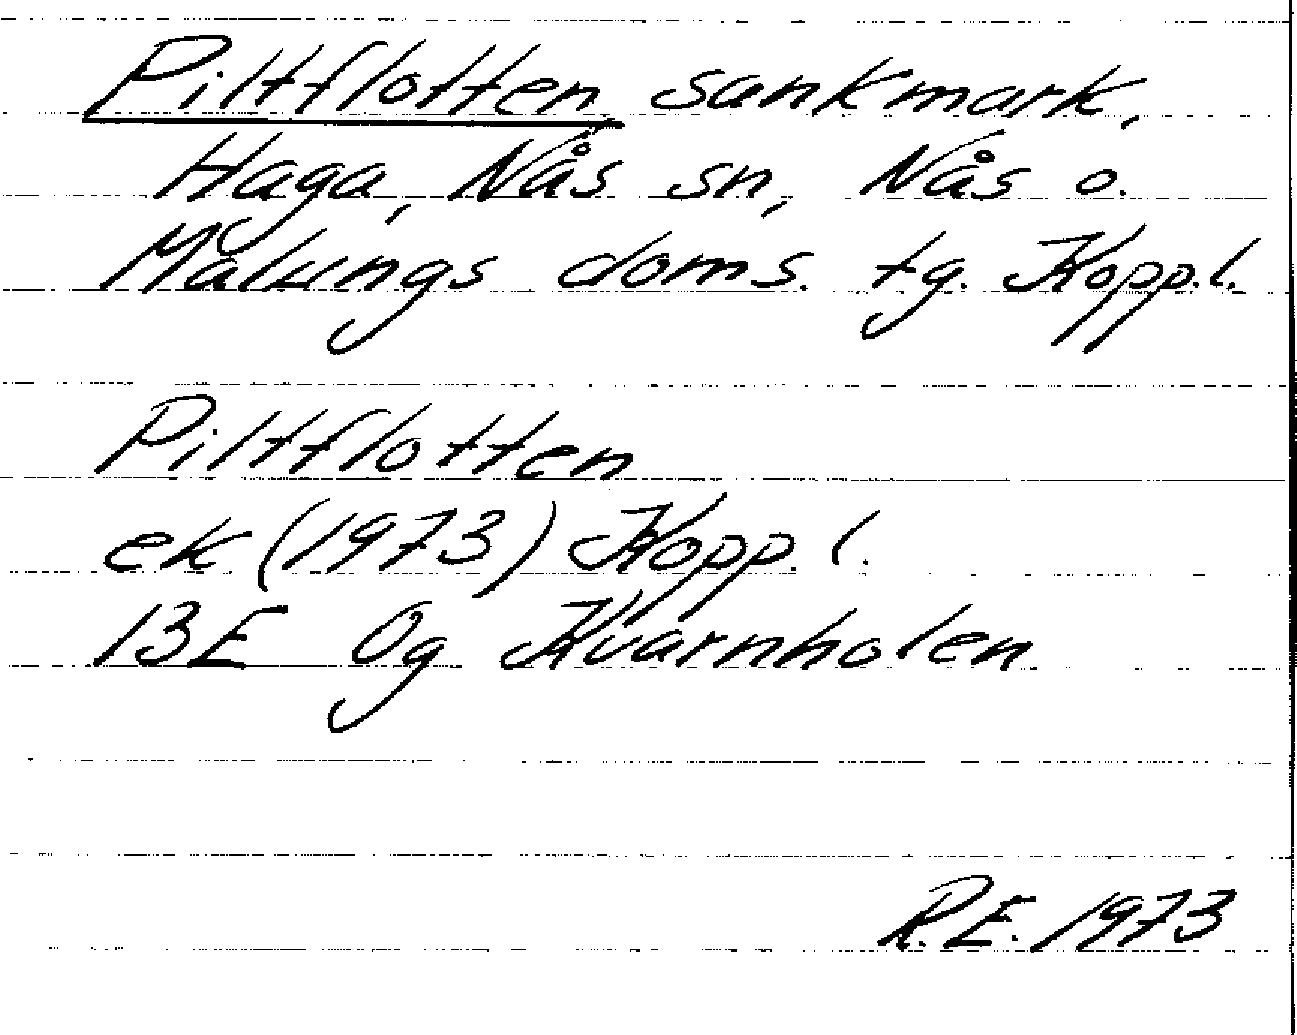 Piltflotten sankmark,
Haga, Nås sn, Nås o.
Malungs doms. tg. Kopp.l.
Piltflotten
ek (1973) Kopp. l.
13E 0g Kvarnholen
R.E. 1973